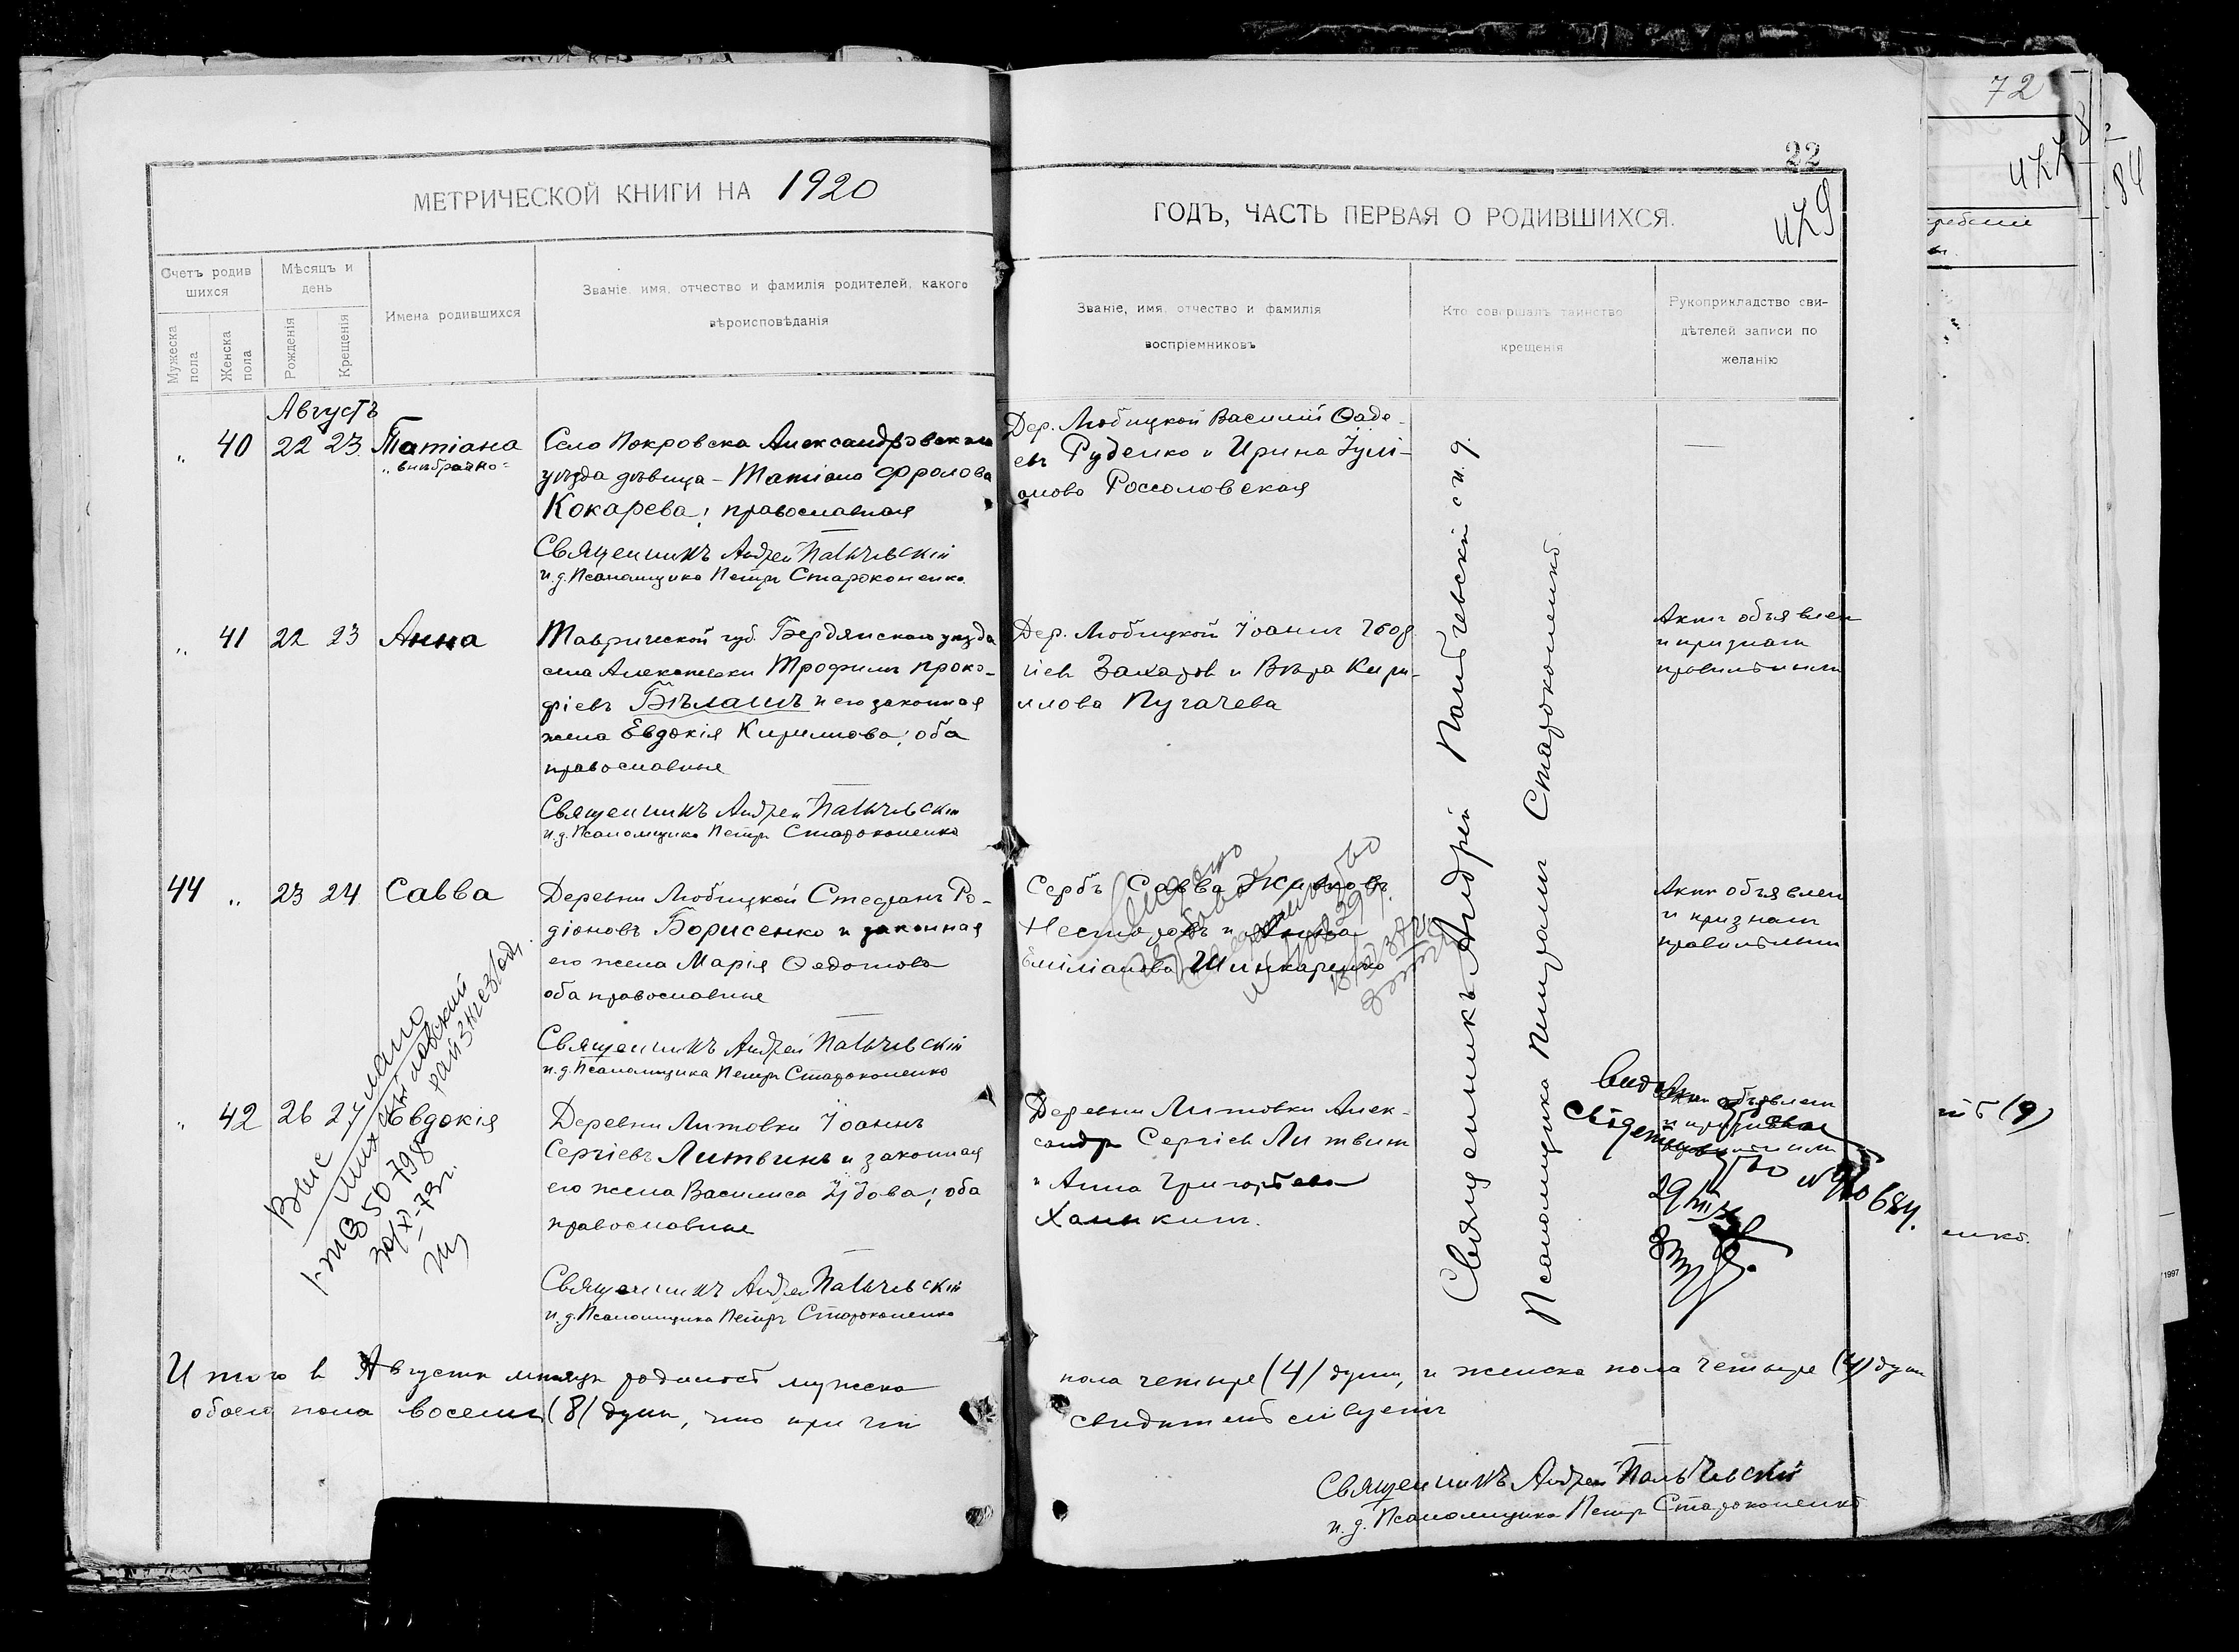 72
22
МЕТРИЧЕСКОЙ КНИГИ НА 1920
ГОДЪ, ЧАСТЬ ПЕРВАЯ О РОДИВШИХСЯ.
429
Счетъ родив
шихся
Мужеска
пола
Женска
пола
Мѣсяцъ и
день
Рожденія
Крещенія
Имена родившихся
Званіе, имя, отчество и фамилія родителей, какого
вѣроисповѣданія
Званіе, имя, отчество и фамилія
воспріемниковъ
Кто совершалъ таинство
крещенія
Рукоприкладство сви-
дѣтелей записи по
желанію
Августъ
" 40 22 23 Татіана
"внѣбрачно"
Село Покровска Александровскаго
уѣзда дѣвица - Татіана Фролова
Кокарева; православная
Священникъ Андрей Пальчевскій
и.д. Псаломщика Петръ Староконенко
Дер. Любицкой Василій Ѳаде-
евъ Руденко и Ирина Іулі-
анова Россоловская
" 41 22 23 Анна
Таврической губ. Бердянскаго уѣзда
села Алексѣевки Трофимъ Проко-
фіевъ Бѣлашъ и его законная
жена Евдокія Кириллова; оба
православные
Священникъ Андрей Пальчевскій
и.д. Псаломщика Петръ Староконенко
Дер. Любицкой Іоаннъ
Захаровъ и Вѣра Кири-
ллова Пугачева
Актъ объявленъ
и признанъ
правильнымъ
44 " 23 24 Савва
Деревни Любицкой Стефанъ Ро-
діоновъ Борисенко и законная
его жена Марія Ѳедотова
оба православные
Священникъ Андрей Пальчевскій
и.д. Псаломщика Петръ Староконенко
Сербъ Савва
Несторовъ и
Емиліанова Шинкаренко
Актъ объявленъ
и признанъ
правильнымъ
" 42 26 27 Евдокія
Деревни Литовки Іоаннъ
Сергіевъ Литвинъ и законная
его жена Василиса Іудова; оба
православные
Священникъ Андрей Пальчевскій
и.д. Псаломщика Петръ Староконенко
Деревни Литовки Алек-
сандръ Сергіевъ Литвинъ
и Анна Григорьева
Ханыкинъ.
Актъ объявленъ
Священникъ Андрей Пальчевскій
Псаломщика Петръ Староконенко
Итого въ Августѣ мѣсяцѣ родилось мужска
пола четыре (4) души, и женска пола четыре (4) души
обоего пола восемь (8) душъ, что при чт
свидѣтельствуетъ
Священникъ Андрей Пальчевскій
и.д. Псаломщика Петръ Староконенко
1997